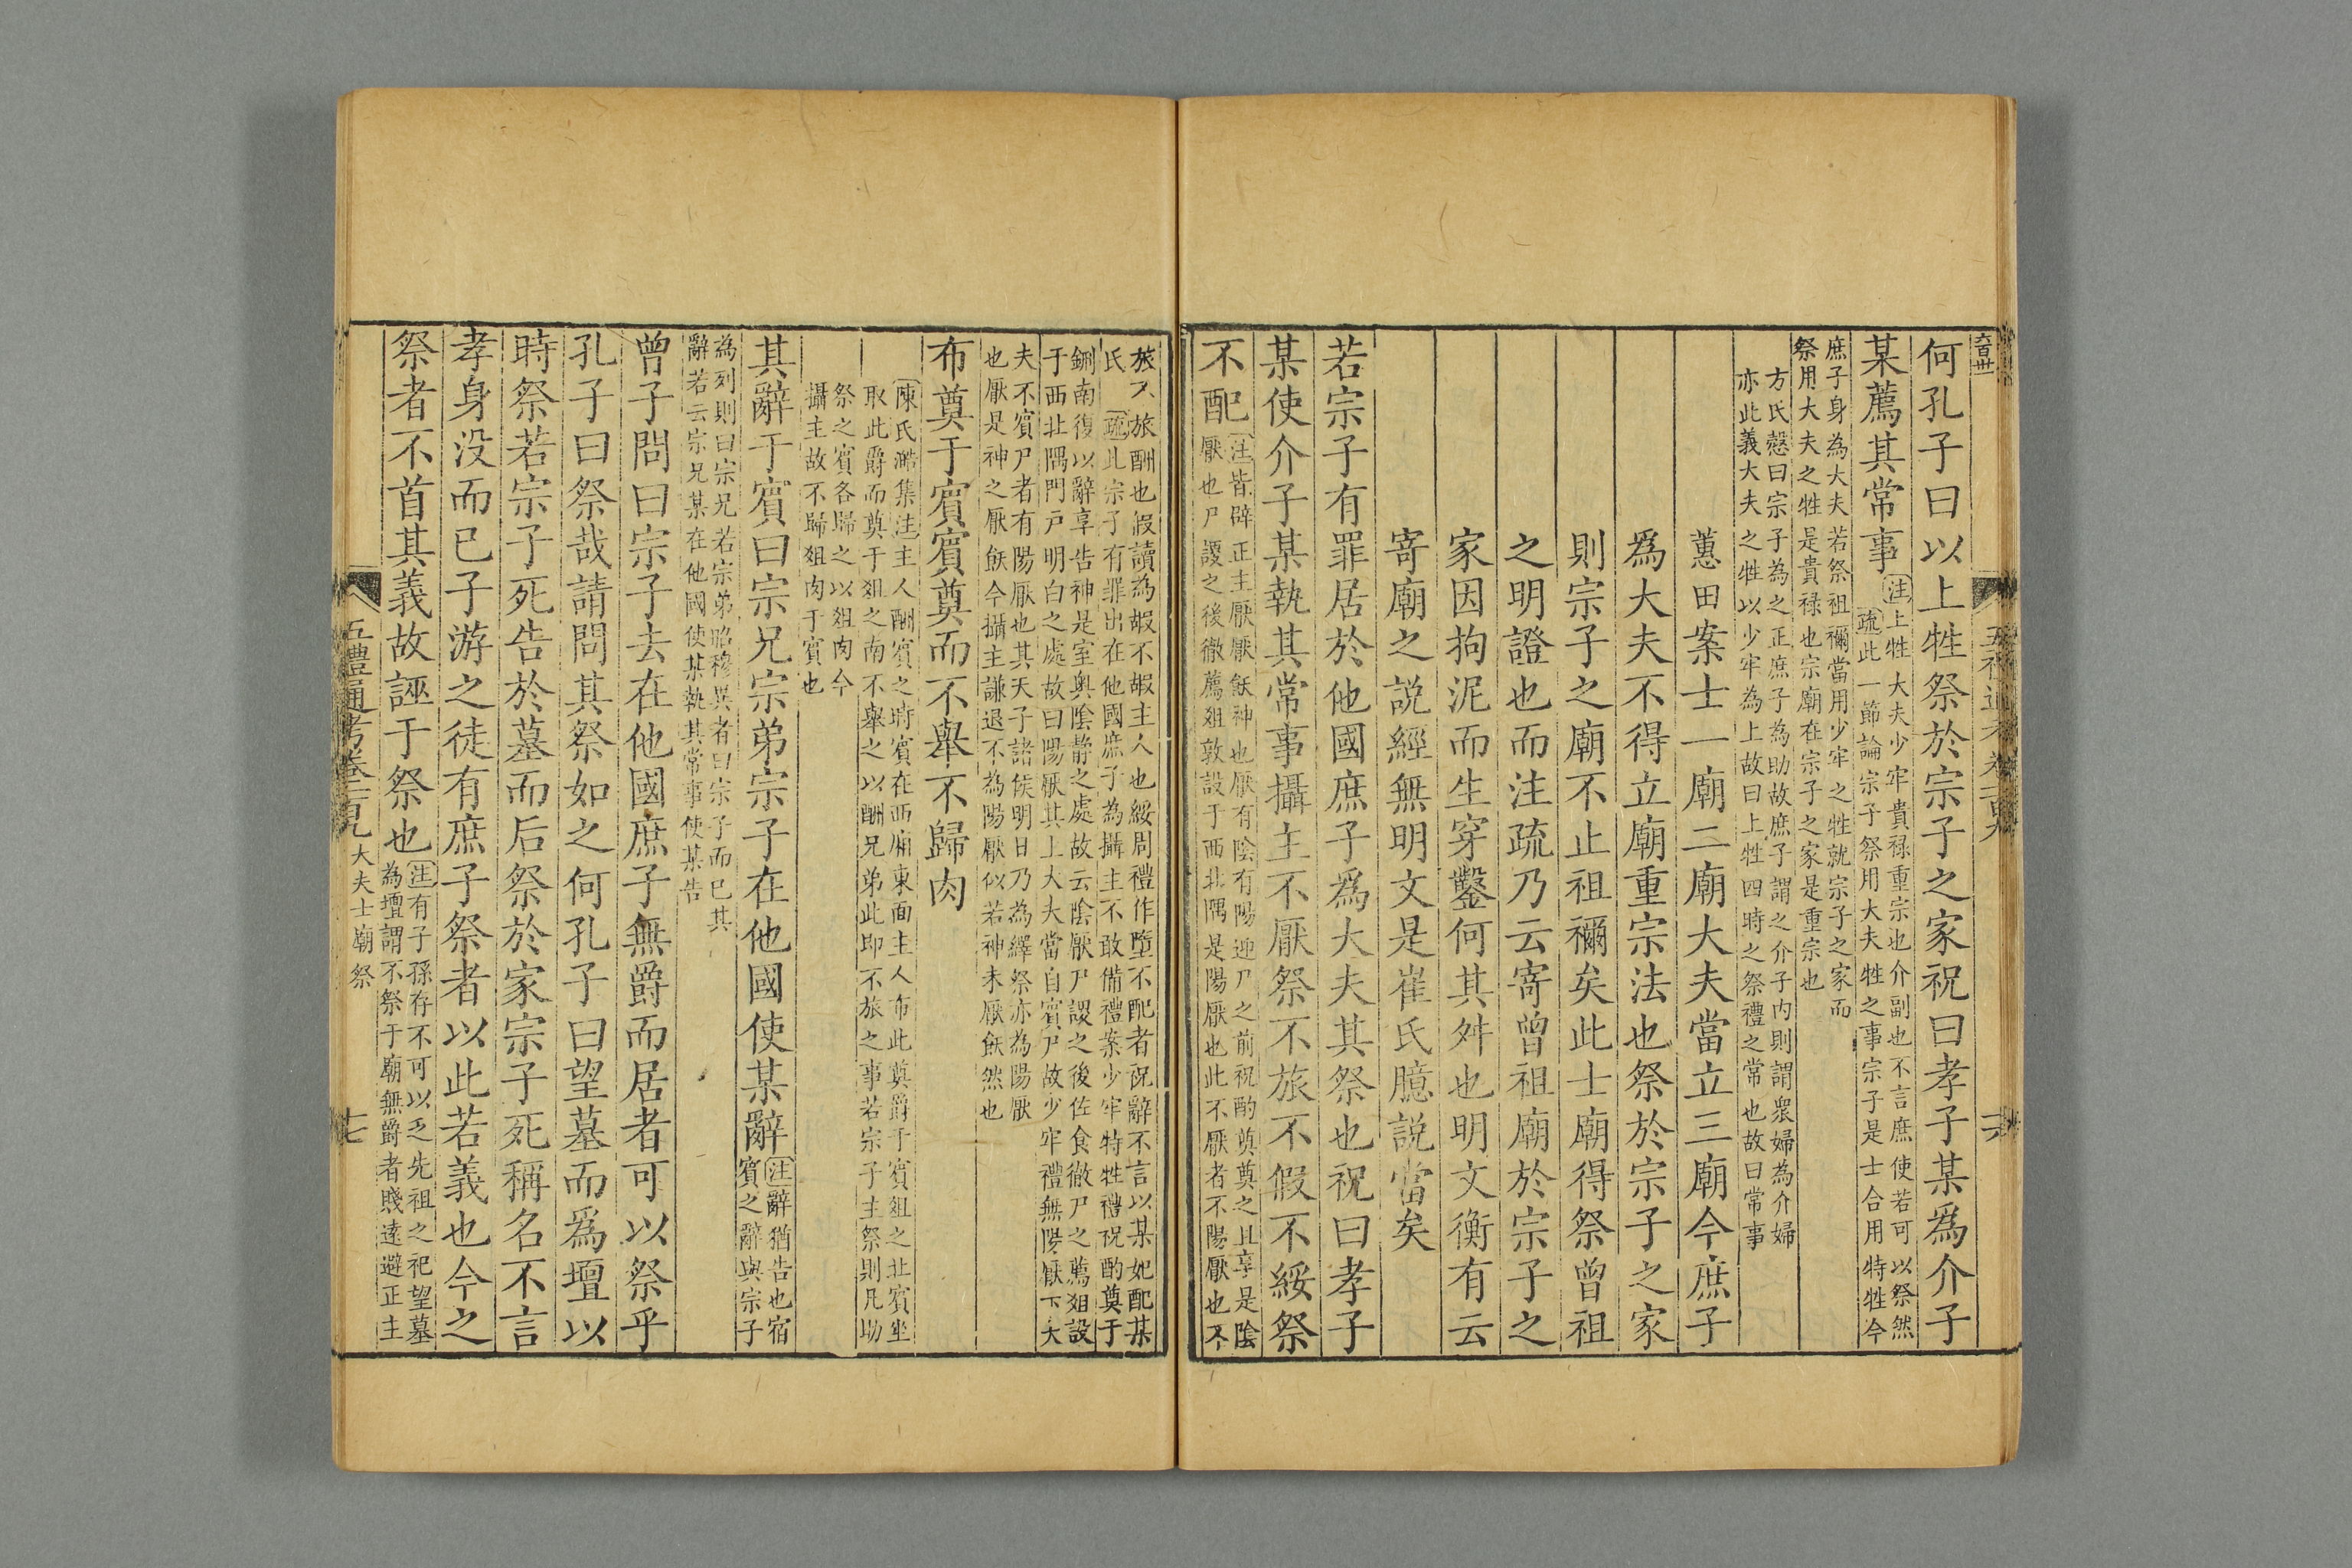 何孔子曰以上牲祭於宗子之家祝曰孝子某爲介子
某薦其常事
注上牲大夫少牢貴禄重宗也介副也不言庶使若可以祭然
疏此一節論宗子祭用大夫牲之事宗子是士合用特牲今
庶子身為大夫若祭祖禰當用少牢之牲就宗子之家而
祭用大夫之牲是貴禄也宗廟在宗子之家是重宗也
方氏慤曰宗子為之正庶子為助故庶子謂之介子内則謂衆婦為介婦
亦此義大夫之牲以少牢為上故曰上牲四時之祭禮之常也故曰常事
蕙田案士一廟二廟大夫當立三廟今庶子
爲大夫不得立廟重宗法也祭於宗子之家
則宗子之廟不止祖禰矣此士廟得祭曾祖
之明證也而注疏乃云寄曾祖廟於宗子之
家因拘泥而生穿鑿何其舛也明文衡有云
寄廟之説經無明文是崔氏臆説當矣
若宗子有罪居於他國庶子爲大夫其祭也祝曰孝子
某使介子某執其常事攝主不厭祭不旅不假不綏祭
不配
注皆辟正主厭厭飫神也厭有陰有陽迎尸之前祝酌奠奠之且享是陰
厭也尸謖之後徹薦俎敦設于西北隅是陽厭也此不厭者不陽厭也不
旅不旅酬也假讀為嘏不嘏主人也綏周禮作墮不配者祝辭不言以某妃配某
氏
疏此宗子有罪出在他國庶子為攝主不敢備禮案少牢特牲禮祝酌奠于
鉶南復以辭享告神是室奥陰静之處故云陰厭尸謖之後佐食徹尸之薦俎設
于西北隅門戸明白之處故曰陽厭其上大夫當自賓尸故少牢禮無陽厭下大
夫不賓尸者有陽厭也其天子諸侯明日乃為繹祭亦為陽厭
也厭是神之厭飫今攝主謙退不為陽厭似若神未厭飫然也
布奠于賓賓奠而不舉不歸肉
陳氏澔集注主人酬賓之時賓在西廂東面主人布此奠爵于賓俎之北賓坐
取此爵而奠于俎之南不舉之以酬兄弟此即不旅之事若宗子主祭則凡助
祭之賓各歸之以俎肉今
攝主故不歸俎肉于賓也
其辭于賓曰宗兄宗弟宗子在他國使某辭
注辭猶告也宿
賓之辭與宗子
為列則曰宗兄若宗弟昭穆異者曰宗子而已其
辭若云宗兄某在他國使某執其常事使某告
曾子問曰宗子去在他國庶子無爵而居者可以祭乎
孔子曰祭哉請問其祭如之何孔子曰望墓而爲壇以
時祭若宗子死告於墓而后祭於家宗子死稱名不言
孝身没而已子游之徒有庶子祭者以此若義也今之
祭者不首其義故誣于祭也
注有子孫存不可以乏先祖之祀望墓
為壇謂不祭于廟無爵者賤遠避正主
五禮通考卷 大夫士廟祭 七